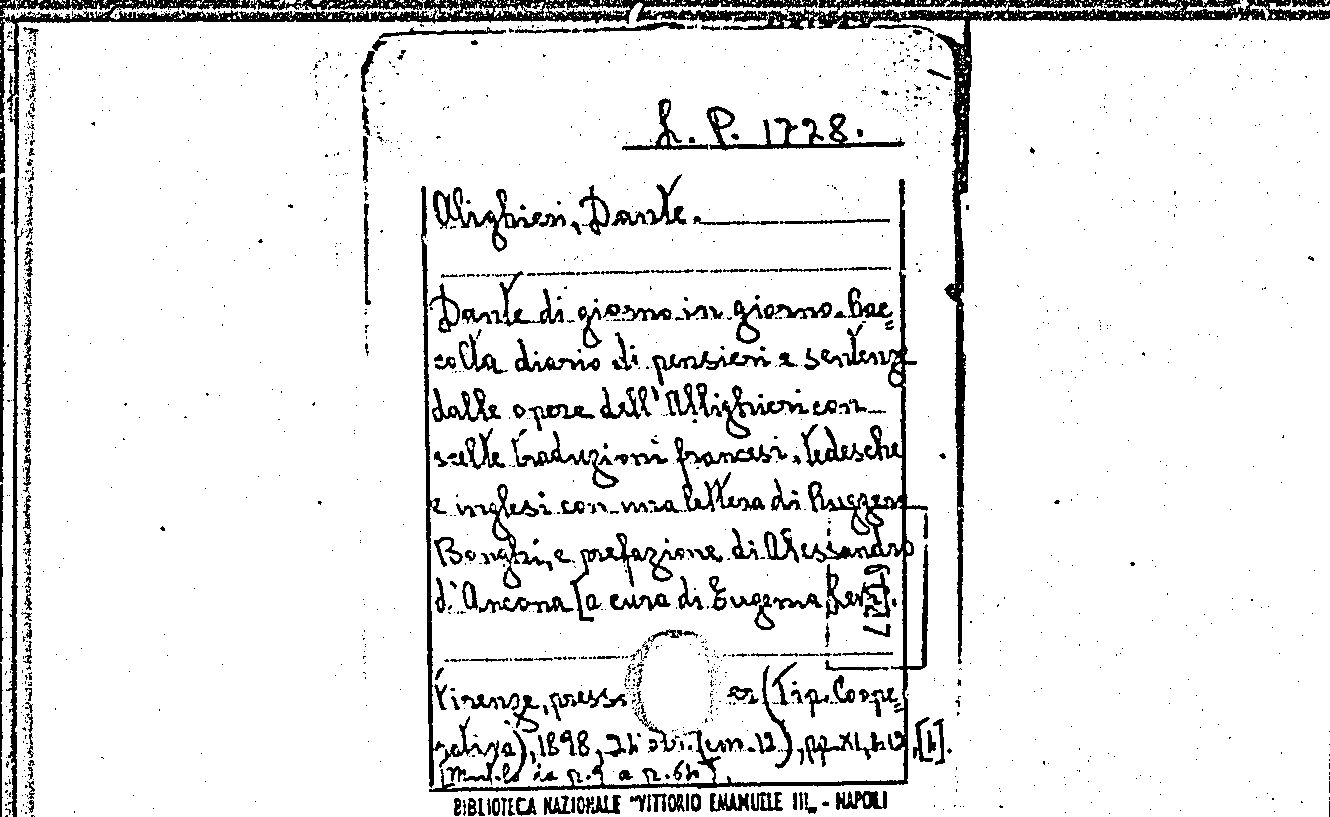 L. P. 1728.
Alighieri, Dante.
Dante di giorno in giorno. Rac=
colta diario di pensieri e sentenze
dalle opere dell'Allighieri con
scelte traduzioni francesi, tedesche
e inglesi con una lettera di Ruggero
Bonghi, e prefazione di Alessandro
d'Ancona [a cura di Eugenia Levi].
Firenze, presso (Tip. Coope=
rativa), 1898, 24° obl. (cm. 12), pp. XI,
[Mutilo da p. 9 a p. 64].
BIBLIOTECA NAZIONALE "VITTORIO EMANUELE III„ - NAPOLI